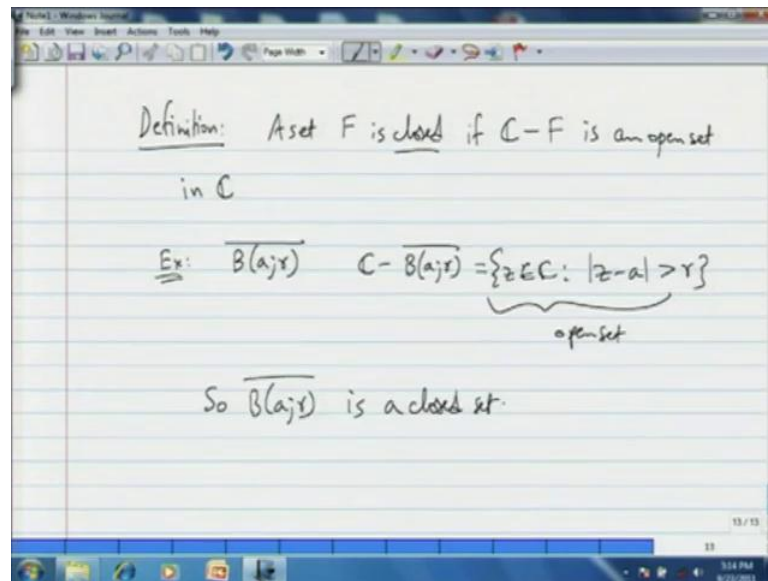 Note1 - Windows Journal
File Edit View Insert Actions Tools Help
Page Width
Definition: A set F is closed if ℂ-F is an open set
in ℂ
Ex: \overline{B(a;r)} ℂ-\overline{B(a;r)} = {z∈ℂ: |z-a| > r}
open set
So \overline{B(a;r)} is a closed set.
13 / 13
13
3:14 PM